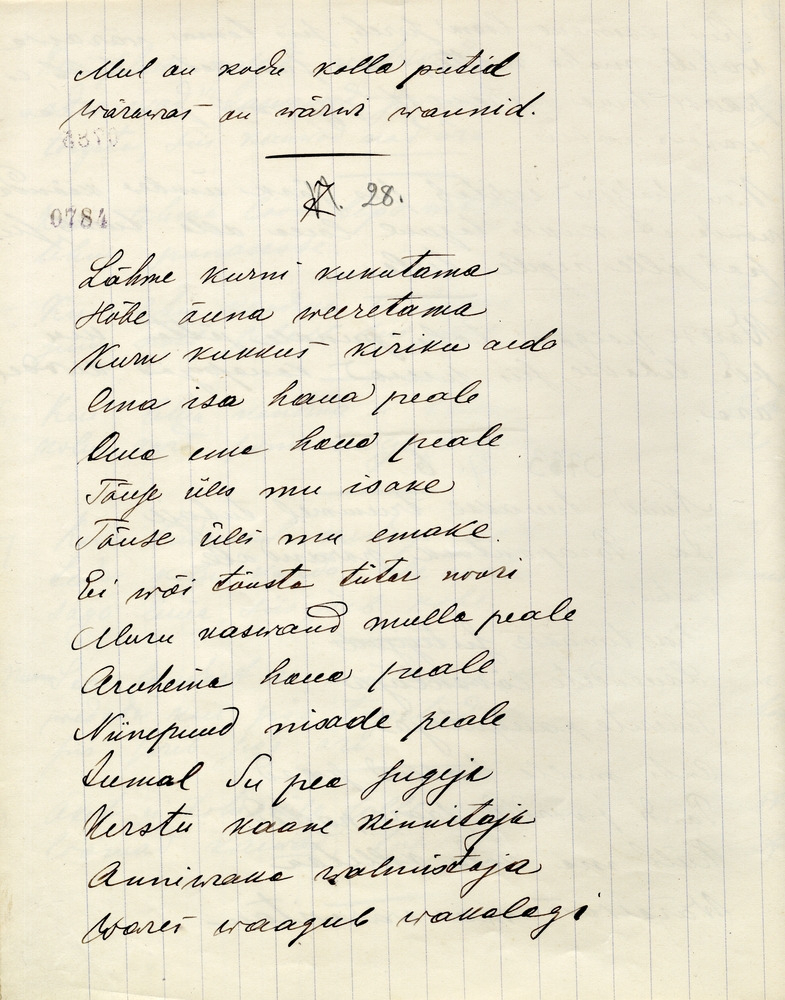 Mul on kodu kolla pütid
Wärawas on wärwi wannid.
4870
28.
0784
Lähme kurni kukutama
Hõbe õuna weeretama
Kurn kukkus kiriku aeda
Oma isa haua peale
Oma ema haua peale
Tõuse üles mu isake
Tõuse üles mu emake.
Ei wõi tõusta tütar noori
Muru kaswand mulla peale
Aruheina haua peale
Niinepuud nisade peale
Jumal Su pea sugeja
Kerstu kaane kinnitaja
Anniwaka walmistaja
Wares waagub wakalagi